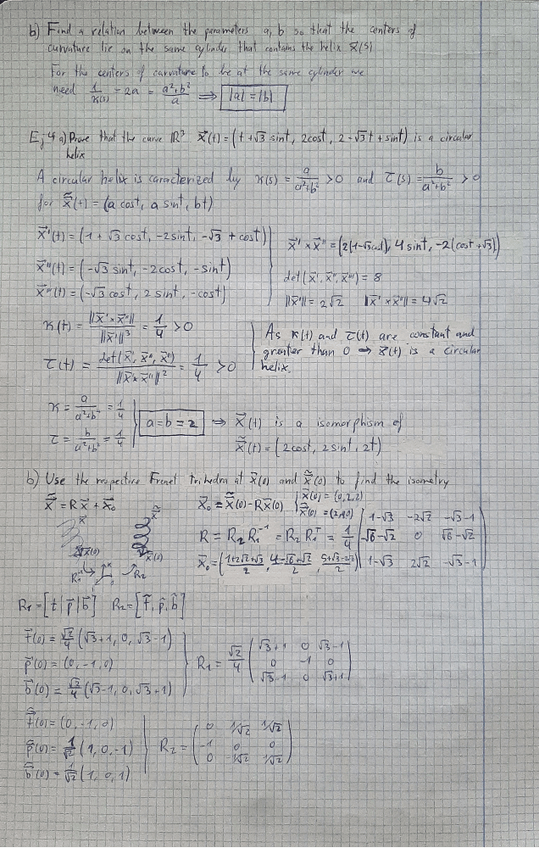 b) Find a relation between the parameters a, b so that the centers of
curvature lie on the same cylinder that contains the helix x⃗(s)
For the centers of curvature to be at the same cylinder we
need 1/κ(s) = 2a = (a²+b²)/a ⟹ |a| = |b|
Ej 4 a) Prove that the curve ℝ³ x⃗(t) = (t+√3 sint, 2cost, 2-√3t + sint) is a circular
helix
A circular helix is caracterized by κ(s) = a/(a²+b²) > 0 and τ(s) = b/(a²+b²) > 0
for x̃⃗(t) = (a cost, a sint, bt)
x⃗'(t) = (1 + √3 cost, -2sint, -√3 + cost)
x⃗' × x⃗'' = (2(1-√3cost), 4 sint, -2(cost+√3))
x⃗''(t) = (-√3 sint, -2cost, -sint)
det(x⃗', x⃗'', x⃗''') = 8
x⃗'''(t) = (-√3 cost, 2 sint, -cost)
‖x⃗'‖ = 2√2 ‖x⃗' × x⃗''‖ = 4√2
κ(t) = ‖x⃗' × x⃗''‖/‖x⃗'‖³ = 1/4 > 0
As κ(t) and τ(t) are constant and
greater than 0 ⟹ x⃗(t) is a circular
helix.
τ(t) = det(x⃗', x⃗'', x⃗''')/‖x⃗' × x⃗''‖² = 1/4 > 0
κ = a/(a²+b²) = 1/4
a = b = 2 ⟹ x⃗(t) is a isomorphism of
τ = b/(a²+b²) = 1/4
x̃⃗(t) = (2cost, 2sint, 2t)
b) Use the respective Frenet trihedra at x⃗(0) and x̃⃗(0) to find the isometry
x̃⃗ = R x⃗ + x⃗₀
x⃗₀ = x̃⃗(0) - R x⃗(0)
x⃗(0) = (0,2,2)
R = R₂R₁⁻¹ = R₂R₁ᵀ = 1/4 ( 1-√3 -2√2 -√3-1
-√6-√2 0 √6-√2
1-√3 2√2 -√3-1 )
R₁ = [t | p | b] R₂ = [t̃, p̃, b̃]
t⃗(0) = √2/4 (√3+1, 0, √3-1)
p⃗(0) = (0, -1, 0)
b⃗(0) = √2/4 (√3-1, 0, √3+1)
R₁ = √2/4 ( √3+1 0 √3-1
0 -1 0
√3-1 0 √3+1 )
t̃⃗(0) = (0, -1, 0)
p̃⃗(0) = 1/√2 (1, 0, -1)
b̃⃗(0) = 1/√2 (1, 0, 1)
R₂ = ( 0 1/√2 1/√2
-1 0 0
0 -1/√2 1/√2 )